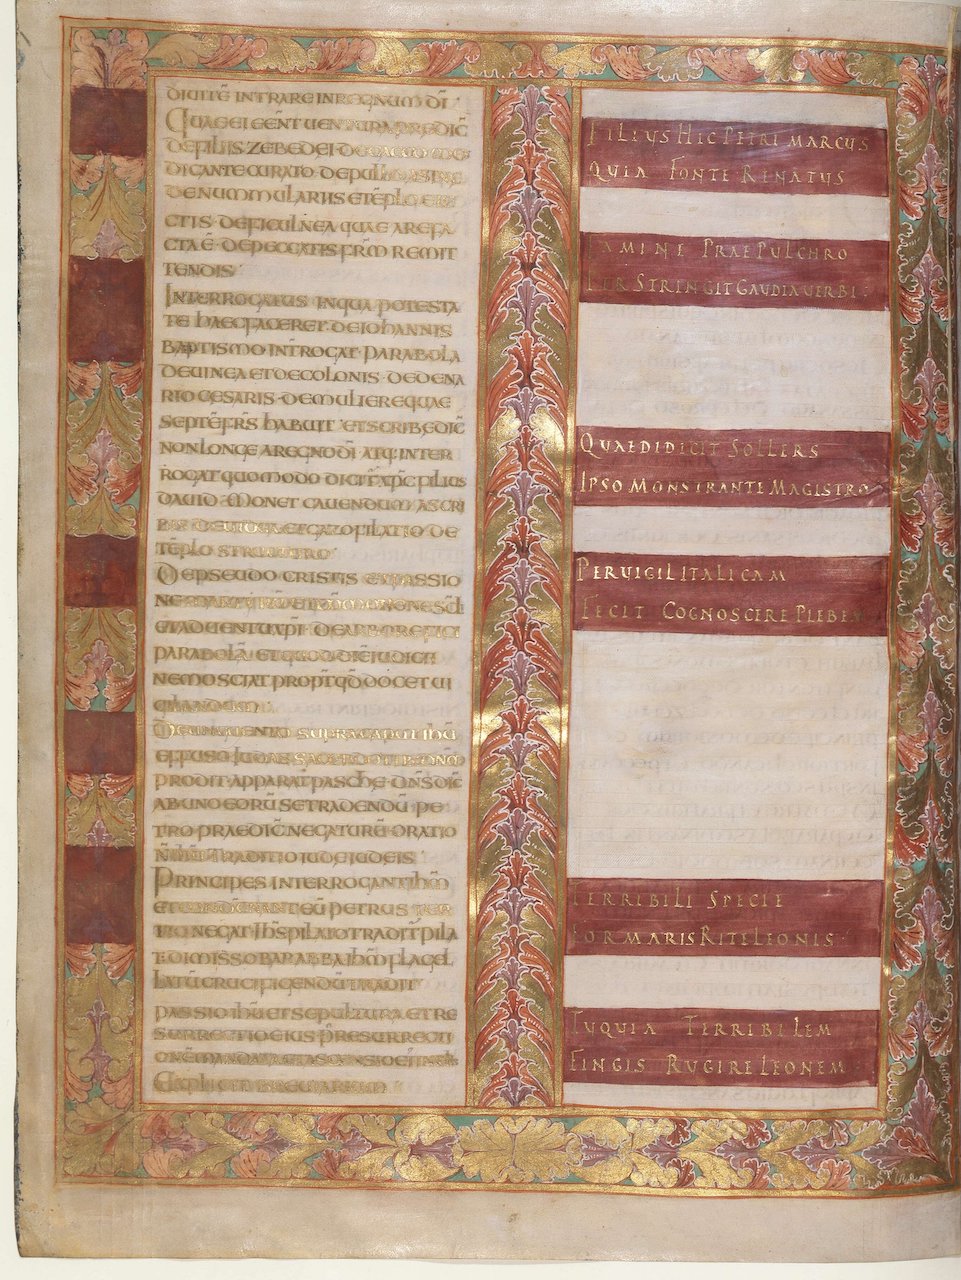 DIUITĒ INTRARE IN REGNUM DĪ
QUAE EI EĒNT UENTURA PREDIC̄
DE FILIIS ZEBEDEI DE
DICANTE CURATO DE PULLO
DE NUMMULARIIS ET ĒPLO
CTIS DE FICULNEA QUAE AREFA
CTA Ē DE PECCATIS FRM̄ REMIT
TENDIS
INTERROGATUS IN QUA POTESTA
TE HAEC FACERET DE IOHANNIS
BAPTISMO INTROGAT PARABOLA
DE UINEA ET DE COLONIS DE DENA
RIO CESARIS DE MULIERE QUAE
SEPTĒ FRS̄ HABUIT ET SCRIBE DIC̄
NON LONGE A REGNO DĪ ATQ INTER
ROGAT QUOMODO DICITĀ XPC̄ FILIUS
DAUID MONET CAVENDUM A SCRI
BIS DE UIDUA ET GAZOPILATIO DE
TĒPLO STRUCTRO
DE PSEUDO CRISTIS ET PASSIO
ET ADUENTU XPĪ DE ARBORE FICI
PARABOLĀ ET QUOD DIĒ IUDICII
NEMO SCIAT PROPT QD DOCET UI
GILANDUM
UNGUENTO SUPRA CAPUT IHŪ
EFFUSO IUDAS SACERDOTIB DNM̄
PRODIT APPARAT PASCHE DNS̄ DIC̄
AB UNO EORŪ SE TRADENDŪ PE
TRO PRAEDIC̄ NEGATURŪ ORATIO
TRADITIO IUDE IUDEIS
PRINCIPES INTERROGANT IHM̄
ET CONDĒNANT EŪ PETRUS TER
TIO NEGAT IHS̄ PILATO TRADIT PILA
T DIMISSO BARABBA IHM̄ FLAGEL
LATŪ CRUCIFIGENDŪ TRADIT
PASSIO IHŪ ET SEPULTURA ET RE
SURRECTIO EIUS PRESURRECTI
ONĒ MANDATA ET ASCENSIO
EXPLICIT BREUIARIUM
FILIUS HIC PETRI MARCUS
QUIA FONTE RENATUS
FAMINE PRAEPULCHRO
PERSTRINGIT GAUDIA UERBI
QUAE DIDICIT SOLLERS
IPSO MONSTRANTE MAGISTRO
PERUIGIL ITALICAM
FECIT COGNOSCERE PLEBEM
TERRIBILI SPECIE
FORMARIS RITE LEONIS
TU QUIA TERRIBILEM
FINGIS RUGIRE LEONEM